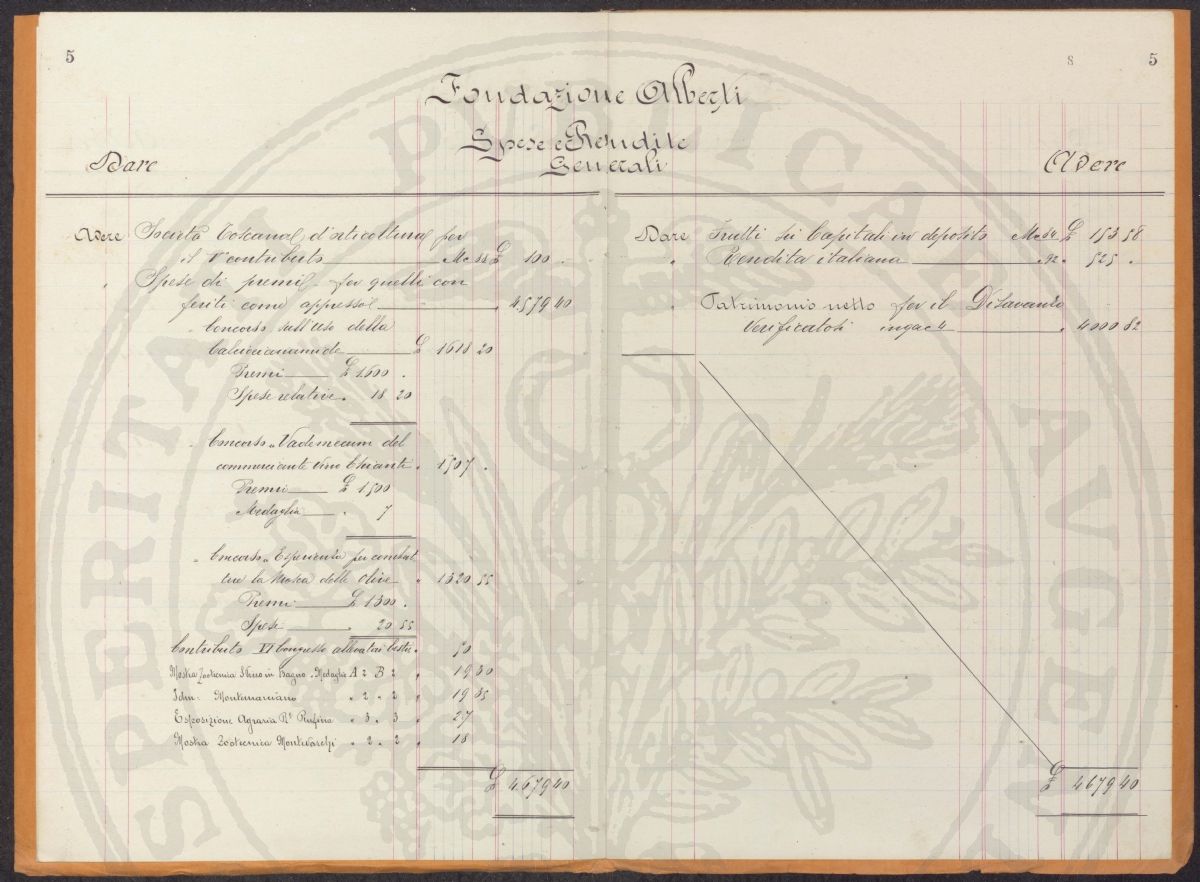 5
8 5
Fondazione Alberti
Spese e Rendite
Generali
Dare
Avere
Avere Società Toscana d'orticoltura per
il 1° contributo Mc 84 £ 100 .
" Spese di premi per quelli con
feriti come appresso . 4579 40
" Concorso sull'uso della
Calciocianamide £ 1618 20
Premi £ 1600 .
Spese relative . 18 20
" Concorso " Vademecum del
commerciante vino Chianti . 1507 .
Premi £ 1500
Medaglia . 7
" Concorso " Esperienza per combat
tere la Mosca delle Olive " 1320 55
Premi £ 1300 .
Spese 20 55
Contributo VI Congresso allevatori besti . 50
Mostra Zootecnica S Piero in Bagno . Medaglie A 2 B 2 " 19 30
Idm Montemarciano " 2 " 2 " 19 35
Esposizione Agraria Rufina " 3 " 3 " 27
Mostra Zootecnica Montevarchi " 2 " 2 " 18
£ 4679 40
Dare Frutti sui Capitali in deposito Mc 84 £ 153 58
" Rendita italiana 92 . 525 .
" Patrimonio netto per il Disavanzo
Verificatosi 4 . 4000 82
£ 4679 40
SPERITAM PUBLICAE AUGEN